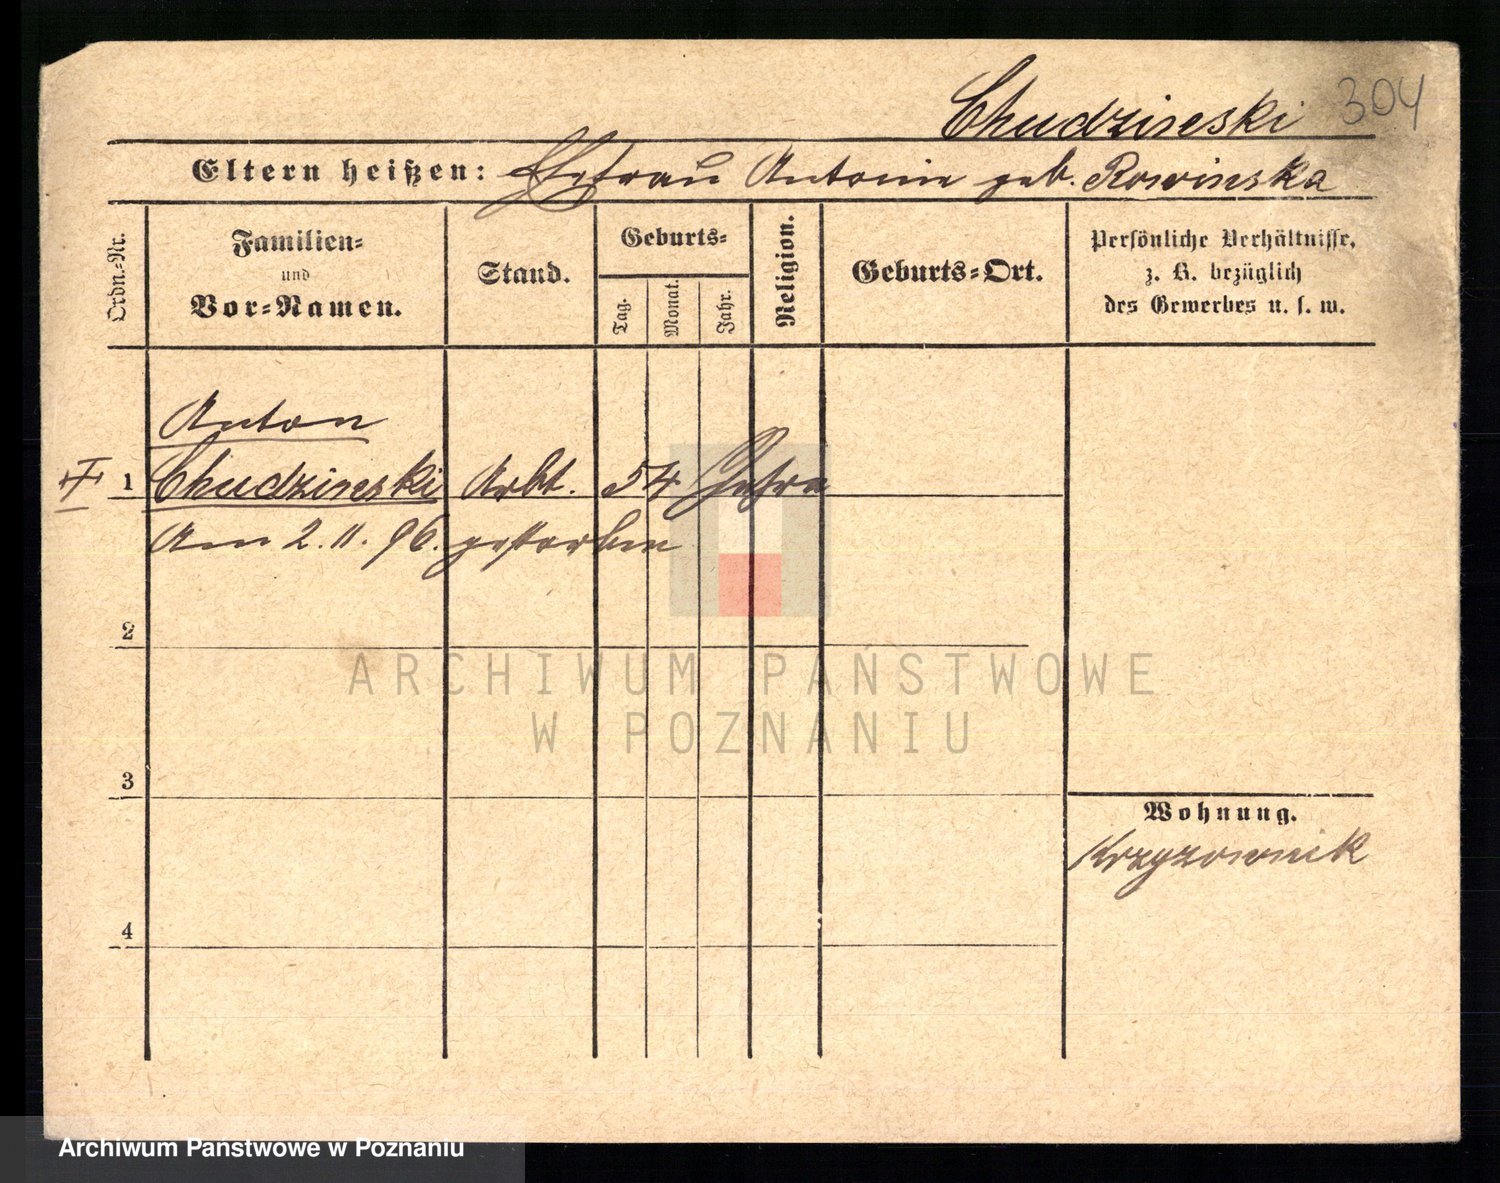 Chudzinski 304
Eltern heißen: Ehefrau Antonie geb. Rowinska
Ordn.-Nr.
Familien-
und
Vor-Namen.
Stand.
Geburts-
Tag.
Monat.
Jahr.
Religion.
Geburts-Ort.
Persönliche Verhältnisse,
z. B. bezüglich
des Gewerbes u. s. w.
Anton
1 Chudzinski Arbt. 54 Jahre
Am 2. 11. 96. gestorben
2
3
4
Wohnung.
Krzyzownik
ARCHIWUM PAŃSTWOWE
W POZNANIU
Archiwum Państwowe w Poznaniu